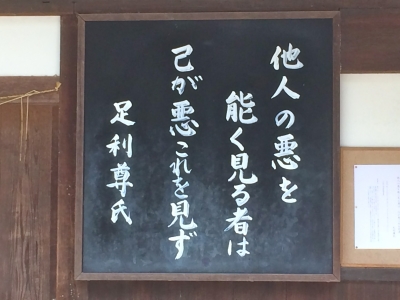 他人の悪を
能く見る者は
己が悪これを見ず
足利尊氏